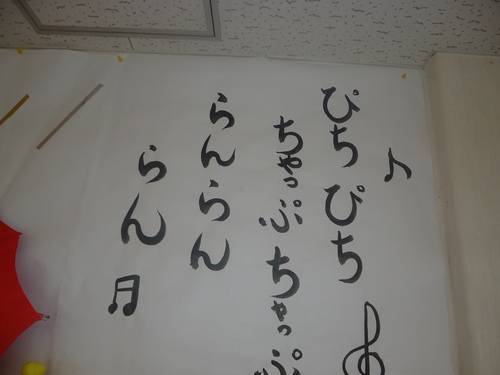 ♪
ぴちぴち
ちゃっぷちゃっぷ
らんらん
らん♬